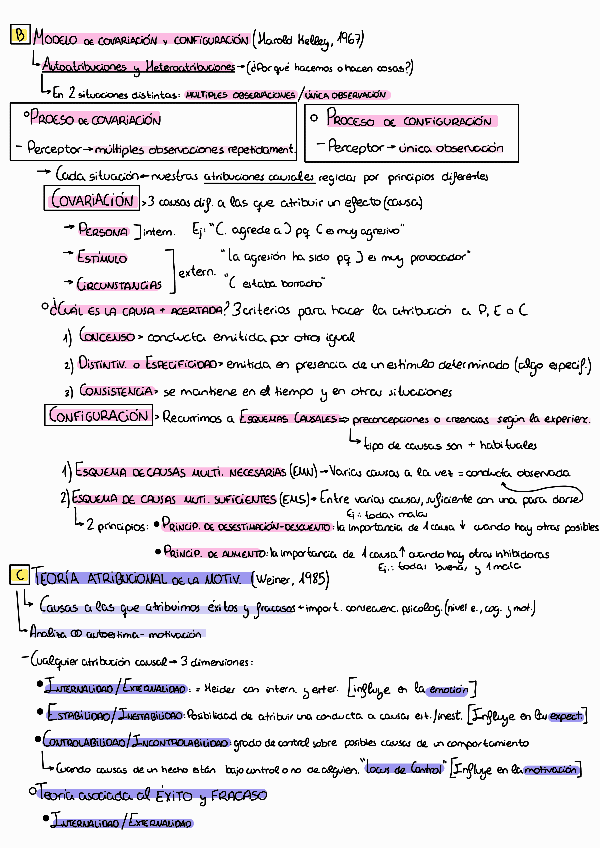 B MODELO DE COVARIACIÓN Y CONFIGURACIÓN (Harold Kelley, 1967)
Autoatribuciones y Heteroatribuciones → (¿Por qué hacemos o hacen cosas?)
En 2 situaciones distintas: MÚLTIPLES OBSERVACIONES / ÚNICA OBSERVACIÓN
PROESO DE COVARIACIÓN
- Perceptor → múltiples observaciones repetidament.
PROCESO DE CONFIGURACIÓN
- Perceptor → única observación
→ Cada situación → nuestras atribuciones causales regidas por principios diferentes
COVARIACIÓN > 3 causas dif. a las que atribuir un efecto (causa)
→ PERSONA ] intern. Ej: "C. agrede a J pq C es muy agresivo"
→ ESTÍMULO "la agresión ha sido pq J es muy provocador"
→ CIRCUNSTANCIAS ] extern. "C estaba borracho"
¿CUÁL ES LA CAUSA + ACERTADA? 3 criterios para hacer la atribución a P, E o C
1) CONCENSO > conducta emitida por otros igual
2) DISTINTIV. O ESPECIFICIDAD > emitida en presencia de un estímulo determinado (algo especif.)
3) CONSISTENCIA > se mantiene en el tiempo y en otras situaciones
CONFIGURACIÓN > Recurrimos a ESQUEMAS CAUSALES ⇒ preconcepciones o creencias según la experienc.
tipo de causas son + habituales
1) ESQUEMA DE CAUSAS MULTI. NECESARIAS (EMN) → Varias causas a la vez = conducta observada
2) ESQUEMA DE CAUSAS MUTI. SUFICIENTES (EMS) → Entre varias causas, suficiente con una para darse
Ej.: todas malas
2 principios: • PRINCIP. DE DESESTIMACIÓN-DESCUENTO: la importancia de 1 causa ↓ cuando hay otras posibles
• PRINCIP. DE AUMENTO: la importancia de 1 causa ↑ cuando hay otras inhibidoras
Ej.: todas buenas y 1 mala
C TEORÍA ATRIBUCIONAL DE LA MOTIV. (Weiner, 1985)
Causas a las que atribuimos éxitos y fracasos → import. consecuenc. psicolog. (nivel e., cog. y mot.)
Analiza autoestima - motivación
- Cualquier atribución causal → 3 dimensiones:
• INTERNALIDAD / EXTERNALIDAD: = Heider con intern. y exter. [influye en la emoción]
• ESTABILIDAD / INESTABILIDAD: Posibilidad de atribuir una conducta a causas est./inest. [Influye en las expect.]
• CONTROLABILIDAD / INCONTROLABILIDAD: grado de control sobre posibles causas de un comportamiento
Cuando causas de un hecho están bajo control o no de alguien. "locus de control" [Influye en la motivación]
Teoría asociada al ÉXITO y FRACASO
• INTERNALIDAD / EXTERNALIDAD